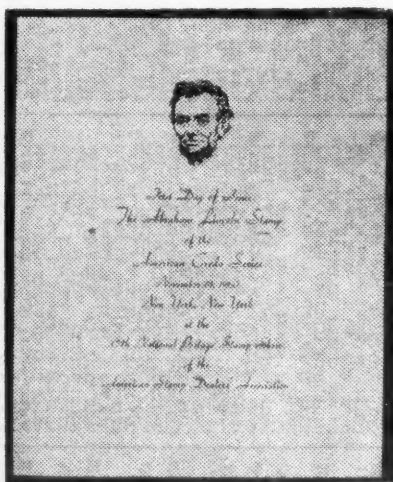 First Day of Issue
The Abraham Lincoln Stamp
of the
American Credo Series
November 19,
New York, New York
at the
National Postage Stamp Show
of the
American Stamp Dealers' Association